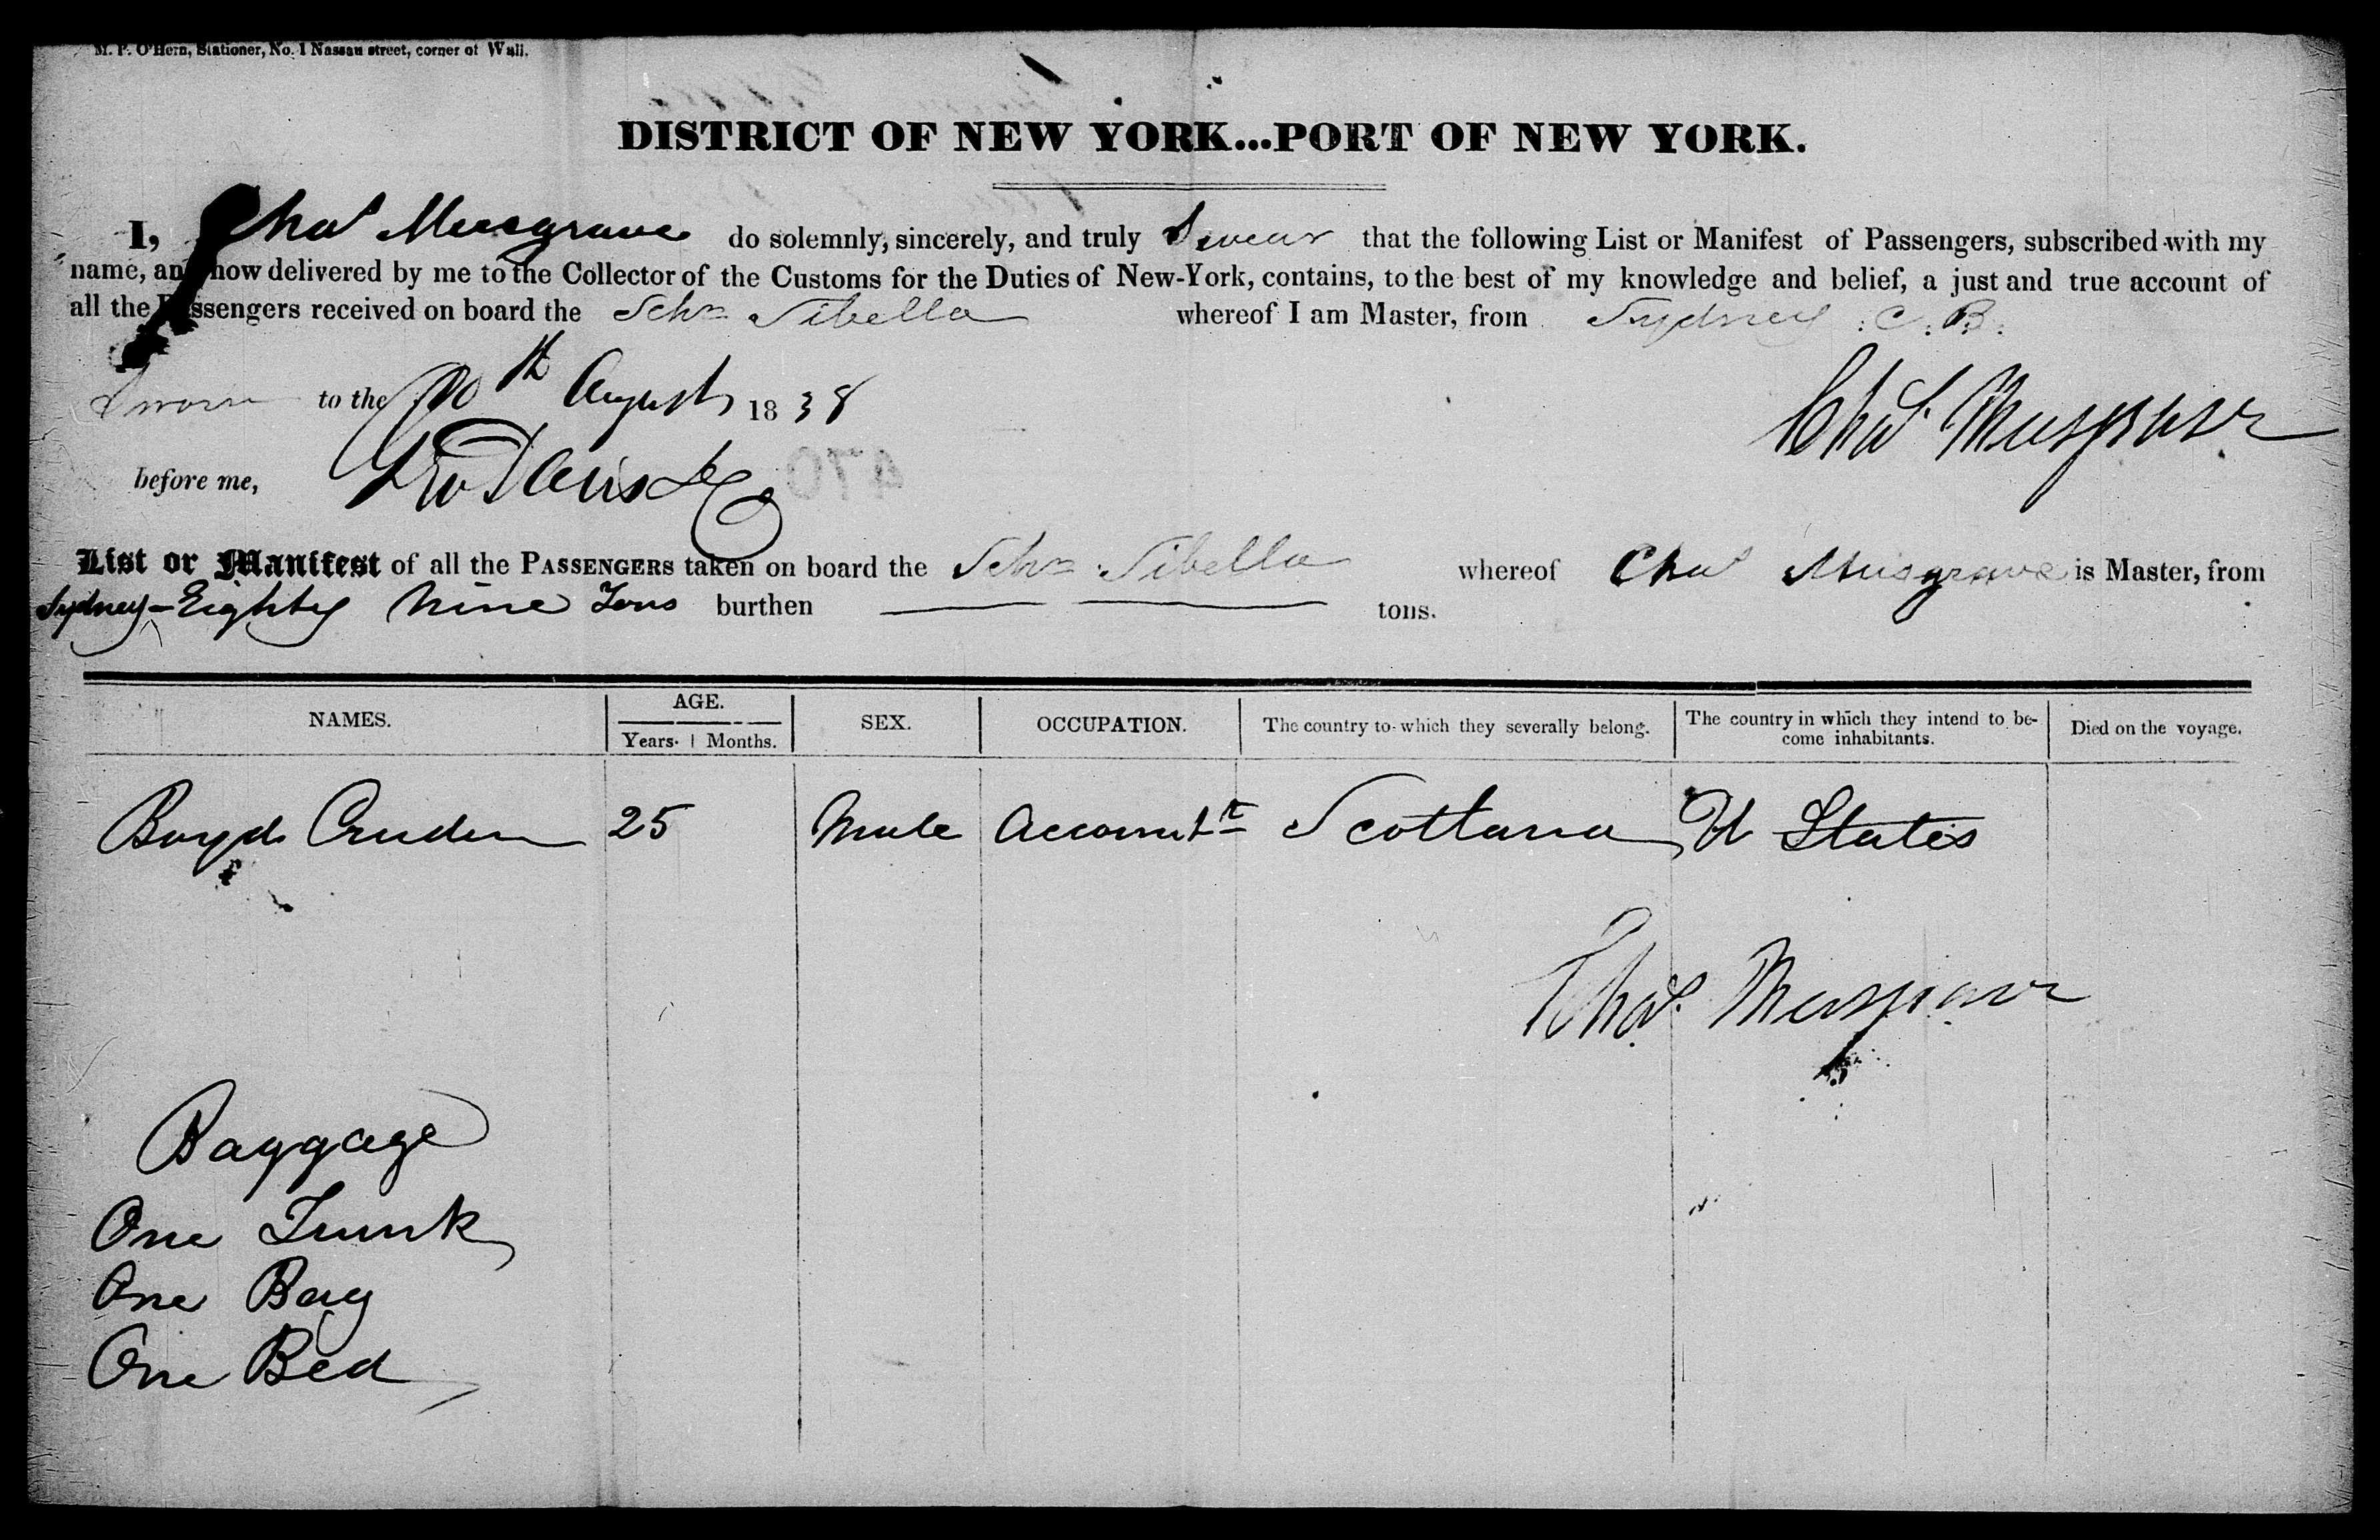 M. P. O'Hern, Stationer, No. 1 Nassau street, corner of Wall.
DISTRICT OF NEW YORK...PORT OF NEW YORK.
I, Chas Musgrave do solemnly, sincerely, and truly Swear that the following List or Manifest of Passengers, subscribed with my
name, and now delivered by me to the Collector of the Customs for the Duties of New-York, contains, to the best of my knowledge and belief, a just and true account of
all the Passengers received on board the Schr Sibella whereof I am Master, from Sydney C. B.
Sworn to the 10th August 1838
Chas. Musgrave
before me,
470
List or Manifest of all the PASSENGERS taken on board the Schr Sibella whereof Chas Musgrave is Master, from
Sydney - Eighty Nine Tons burthen tons.
NAMES. AGE. Years. Months. SEX. OCCUPATION. The country to which they severally belong. The country in which they intend to be-
come inhabitants. Died on the voyage.
Boyd Cruden 25 Male Accountt Scotland U States
Chas. Musgrave
Baggage
One Trunk
One Bag
One Bed